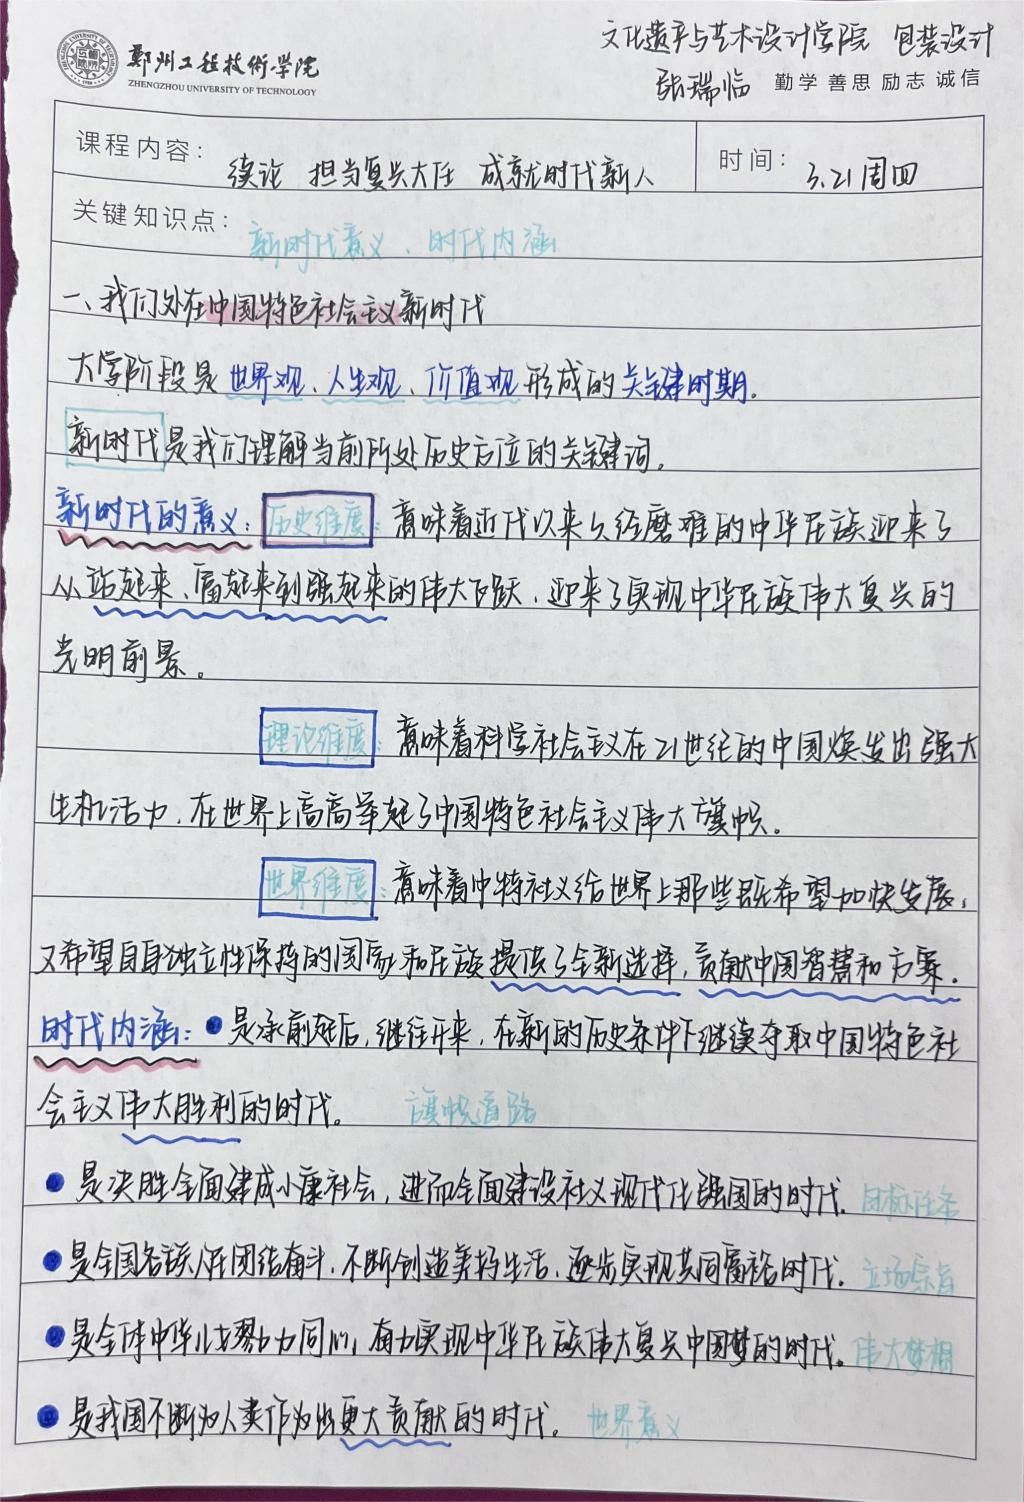 文化遗产与艺术设计学院 包装设计
郑州工程技術学院
ZHENGZHOU UNIVERSITY OF TECHNOLOGY
张瑞临 勤学 善思 励志 诚信
课程内容： 续论 担当复兴大任 成就时代新人 时间： 3.21周四
关键知识点： 新时代意义、时代内涵
一、我们处在中国特色社会主义新时代
大学阶段是世界观、人生观、价值观形成的关键时期。
新时代是我们理解当前所处历史方位的关键词。
新时代的意义：历史维度：意味着近代以来久经磨难的中华民族迎来了
从站起来、富起来到强起来的伟大飞跃，迎来了实现中华民族伟大复兴的
光明前景。
理论维度：意味着科学社会主义在21世纪的中国焕发出强大
生机活力，在世界上高高举起了中国特色社会主义伟大旗帜。
世界维度：意味着中特社义给世界上那些既希望加快发展，
又希望自身独立性保持的国家和民族提供了全新选择，贡献中国智慧和方案。
时代内涵：●是承前起后，继往开来，在新的历史条件下继续夺取中国特色社
会主义伟大胜利的时代。 旗帜道路
●是决胜全面建成小康社会，进而全面建设社义现代化强国的时代。目标任务
●是全国各族人民团结奋斗，不断创造美好生活，逐步实现共同富裕时代。立场宗旨
●是全体中华儿女勠力同心，奋力实现中华民族伟大复兴中国梦的时代。伟大梦想
●是我国不断为人类作为出更大贡献的时代。 世界意义